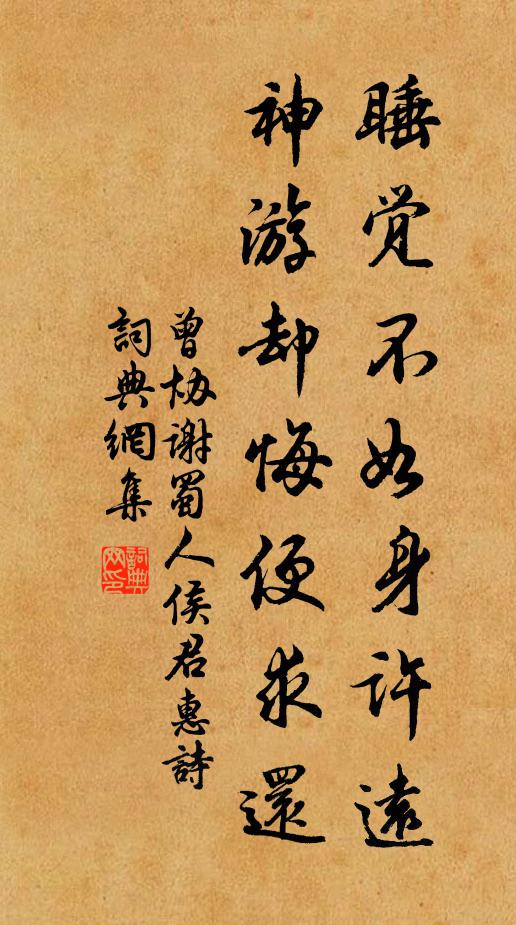 睡觉不如身许远
神游却悔便求還
曾协谢蜀人侯君惠詩
詞典網集
詞典网印